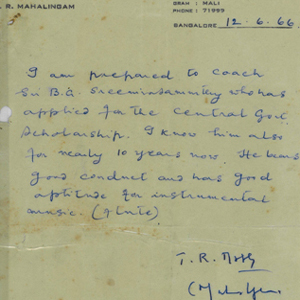 R. MAHALINGAM
GRAM : MALI
PHONE : 71999
BANGALORE 12.6.66
I am prepared to coach
Sri B.G. who has
applied for the Central Govt.
Scholarship. I know him also
for nearly 10 years now. He bears
good conduct and has good
aptitude for instrumental
music. (flute)
T. R.